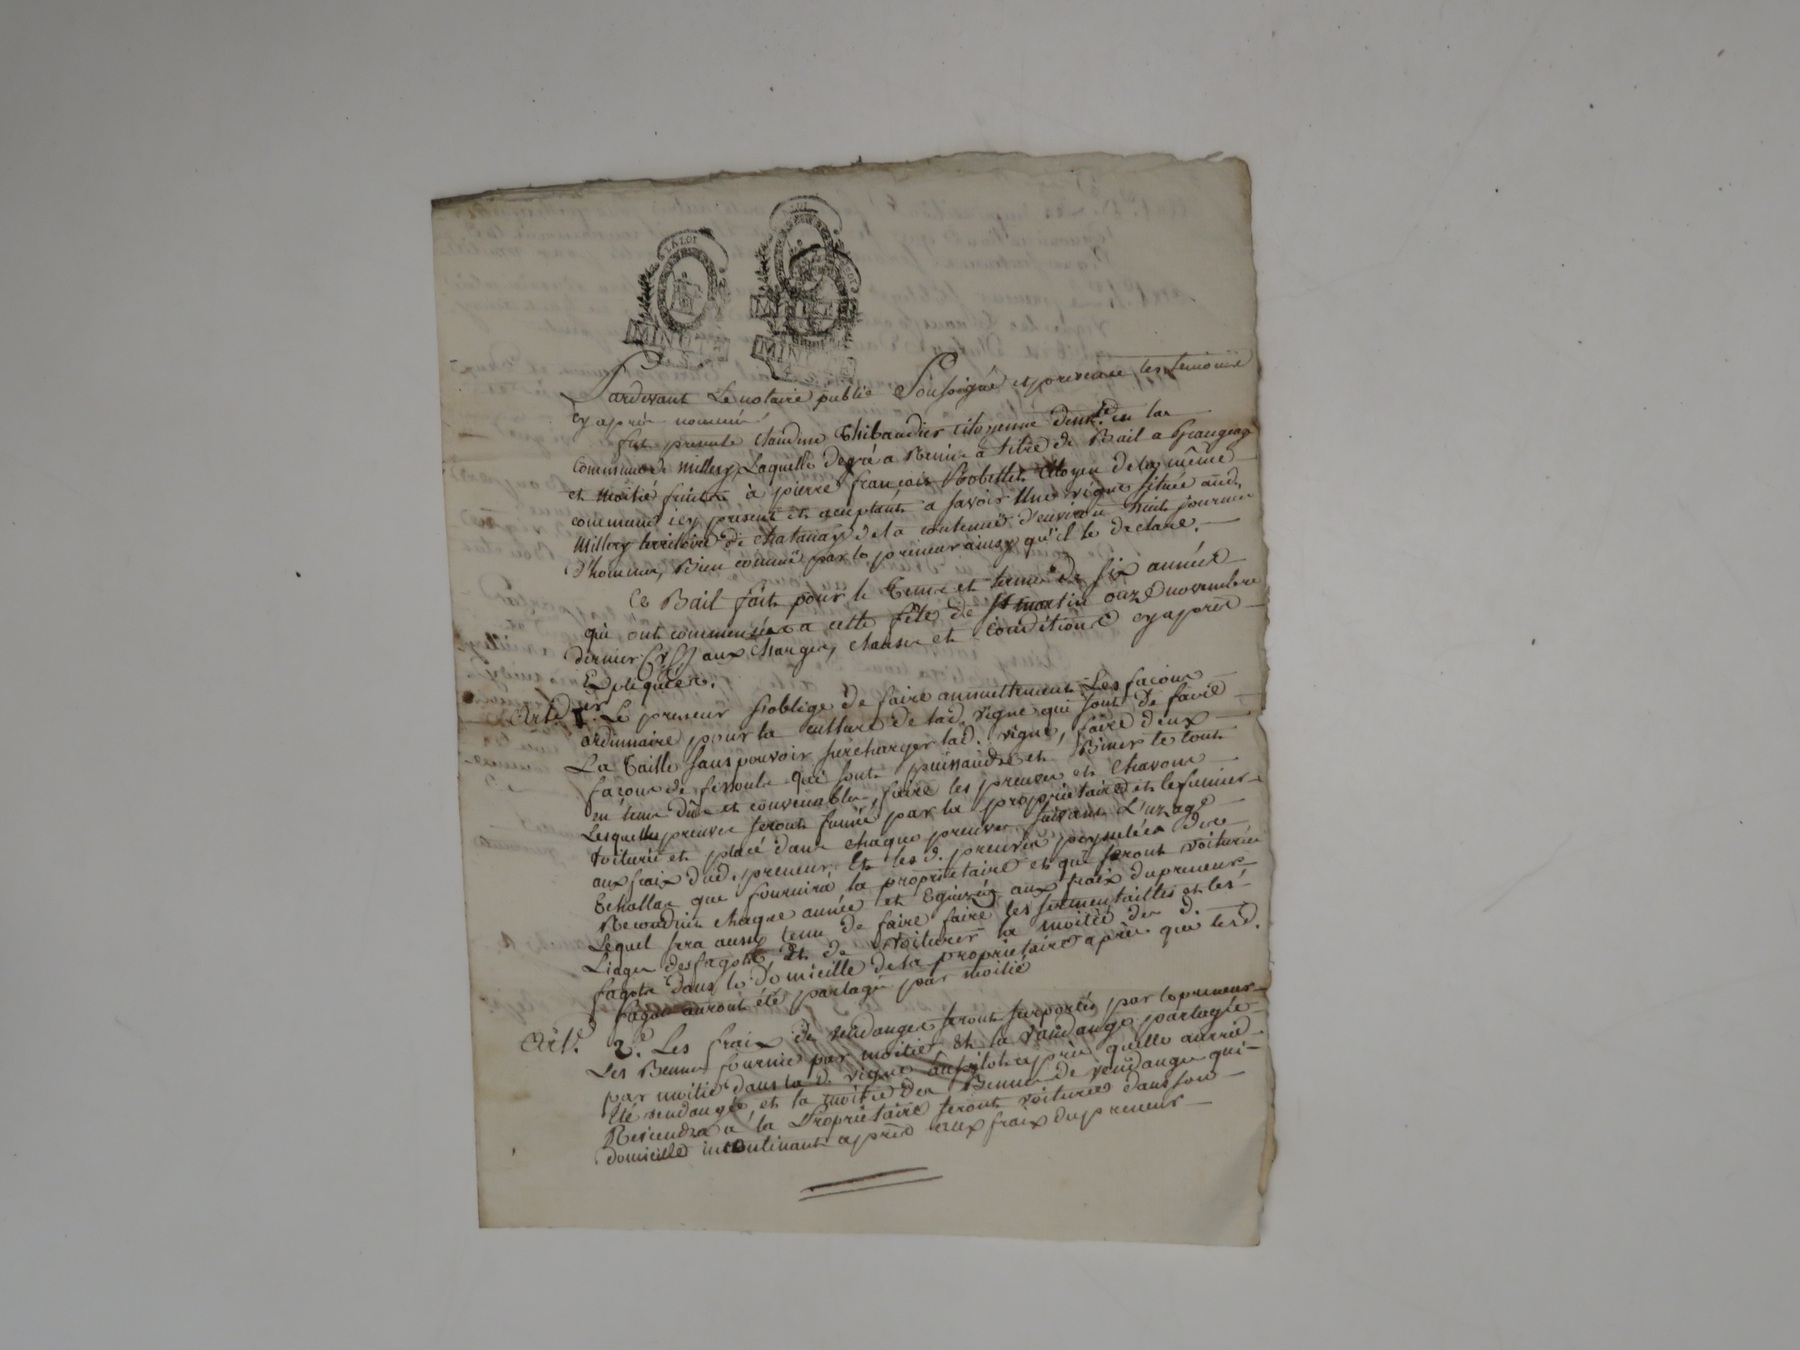 LA LOI
LA LOI
MINUTE
MINUTE
Pardevant Le notaire public Soussigné et presence les temoins
cy après nommés
fut presente Claudine Thibaudier citoyenne demte. en la
Commune de Millery, Laquelle de gré a Remis a titre de Bail a Grangeage
et moitié fruits à pierre françois Citoyen de la même
commune icy present et acceptant a savoir Une vigne située aud.
Millery territoire de chatanay de la contenue d'environ huit journées
d'hommes, Bien connue par le preneur ainsy qu'il le declare.
Ce Bail fait pour le tems et terme de six années
qui ont commencées a cette fête de St martin onze novembre
dernier aux charges, clauses et conditions cy après
Expliquées.
Arte. 1er. Le preneur s'oblige de faire annuellement Les façons
ordinnaire pour la culture de lad. vigne qui sont de faire
La taille sans pouvoir surcharger lad. vigne, faire deux
façons de fessoule qui sont et Biner le tout
en tems dus et convenables, faire les preuves et chavons
Lesquelles preuves seront fumés par la propriétaire et le fumier
voiturié et placé dans chaque preuves suivant L'uzage
aux fraix dud. preneur. Et les d. preuves
Echallas que fournira la proprietaire et qui seront voiturés
chaque année et aux fraix du preneur
Lequel sera aussy tenu de faire faire les sermentailles et les
Liages des fagots et de voiturer la moitié des d.
fagots dans le domicille de la proprietaire après que lesd.
fagots auront été partagés par moitié
Arte. 2e. Les fraix de vendanges seront surportés par le preneur
Les Bennes fournies par moitié et la vandange partagée
par moitié dans la d. vigne aussitôt après quelle aurra
été vendangée, et la moitié des Bennes de vendange qui
Reviendra a la Proprietaire seront voiturées dans son
domicille incontinant après aux fraix du preneur